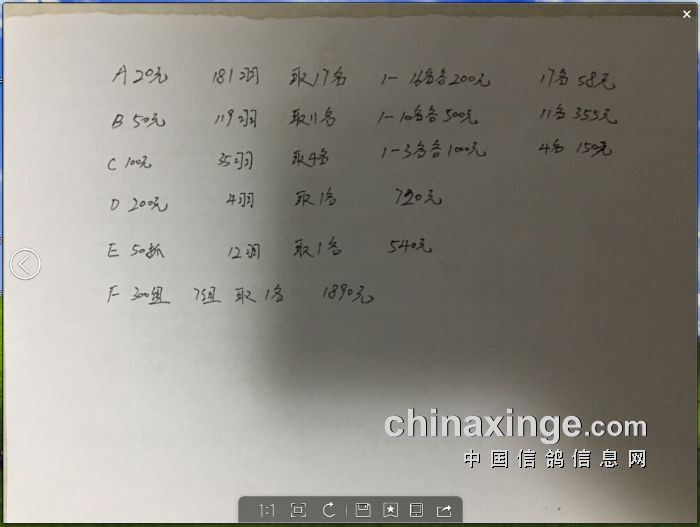 A 20元 181羽 取17名 1-16名各200元 17名 58元
B 50元 119羽 取11名 1-10名各500元 11名 355元
C 100元 35羽 取4名 1-3名各1000元 4名 150元
D 200元 4羽 取1名 720元
E 50抓 12羽 取1名 540元
F 300组 7组 取1名 1890元
chinaxinge.com
中国信鸽信息网
1:1